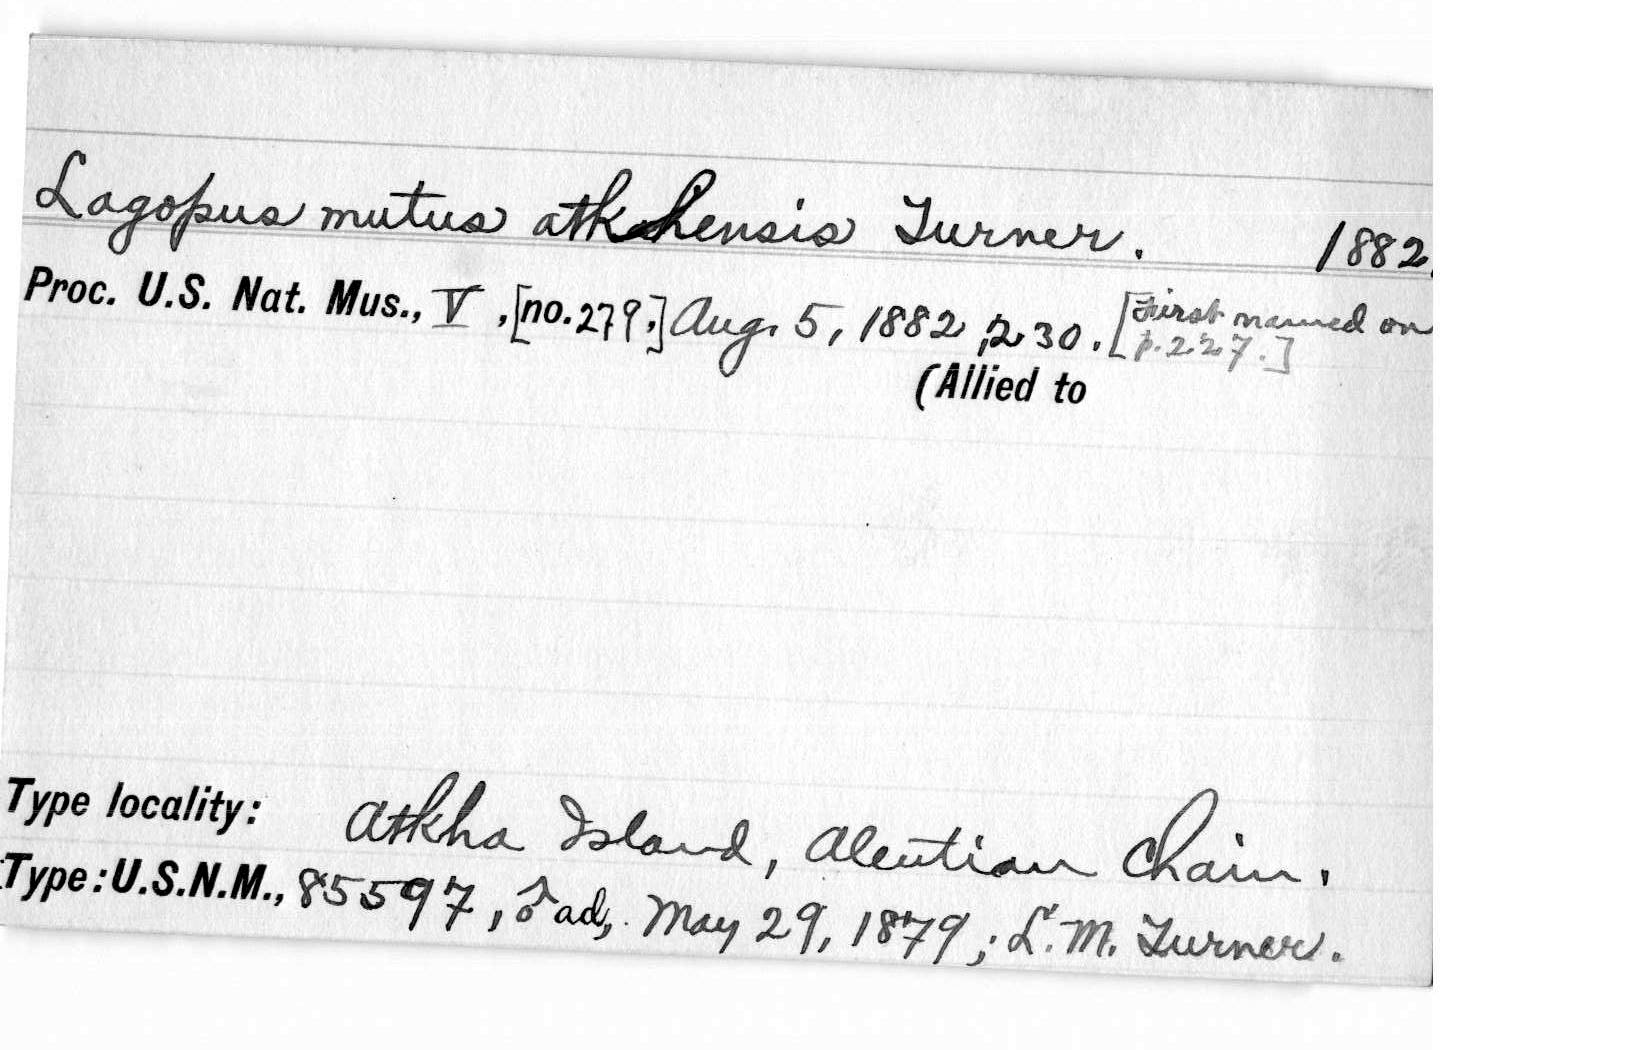 Lagopus mutus atkhensis Turner. 1882.
Proc. U.S. Nat. Mus., V, [no. 279,] Aug. 5, 1882, 230. [First named on
p. 227.]
(Allied to
Type locality: Atkha Island, Aleutian Chain.
Type: U.S.N.M., 85597, ♂ ad., May 29, 1879; L. M. Turner.